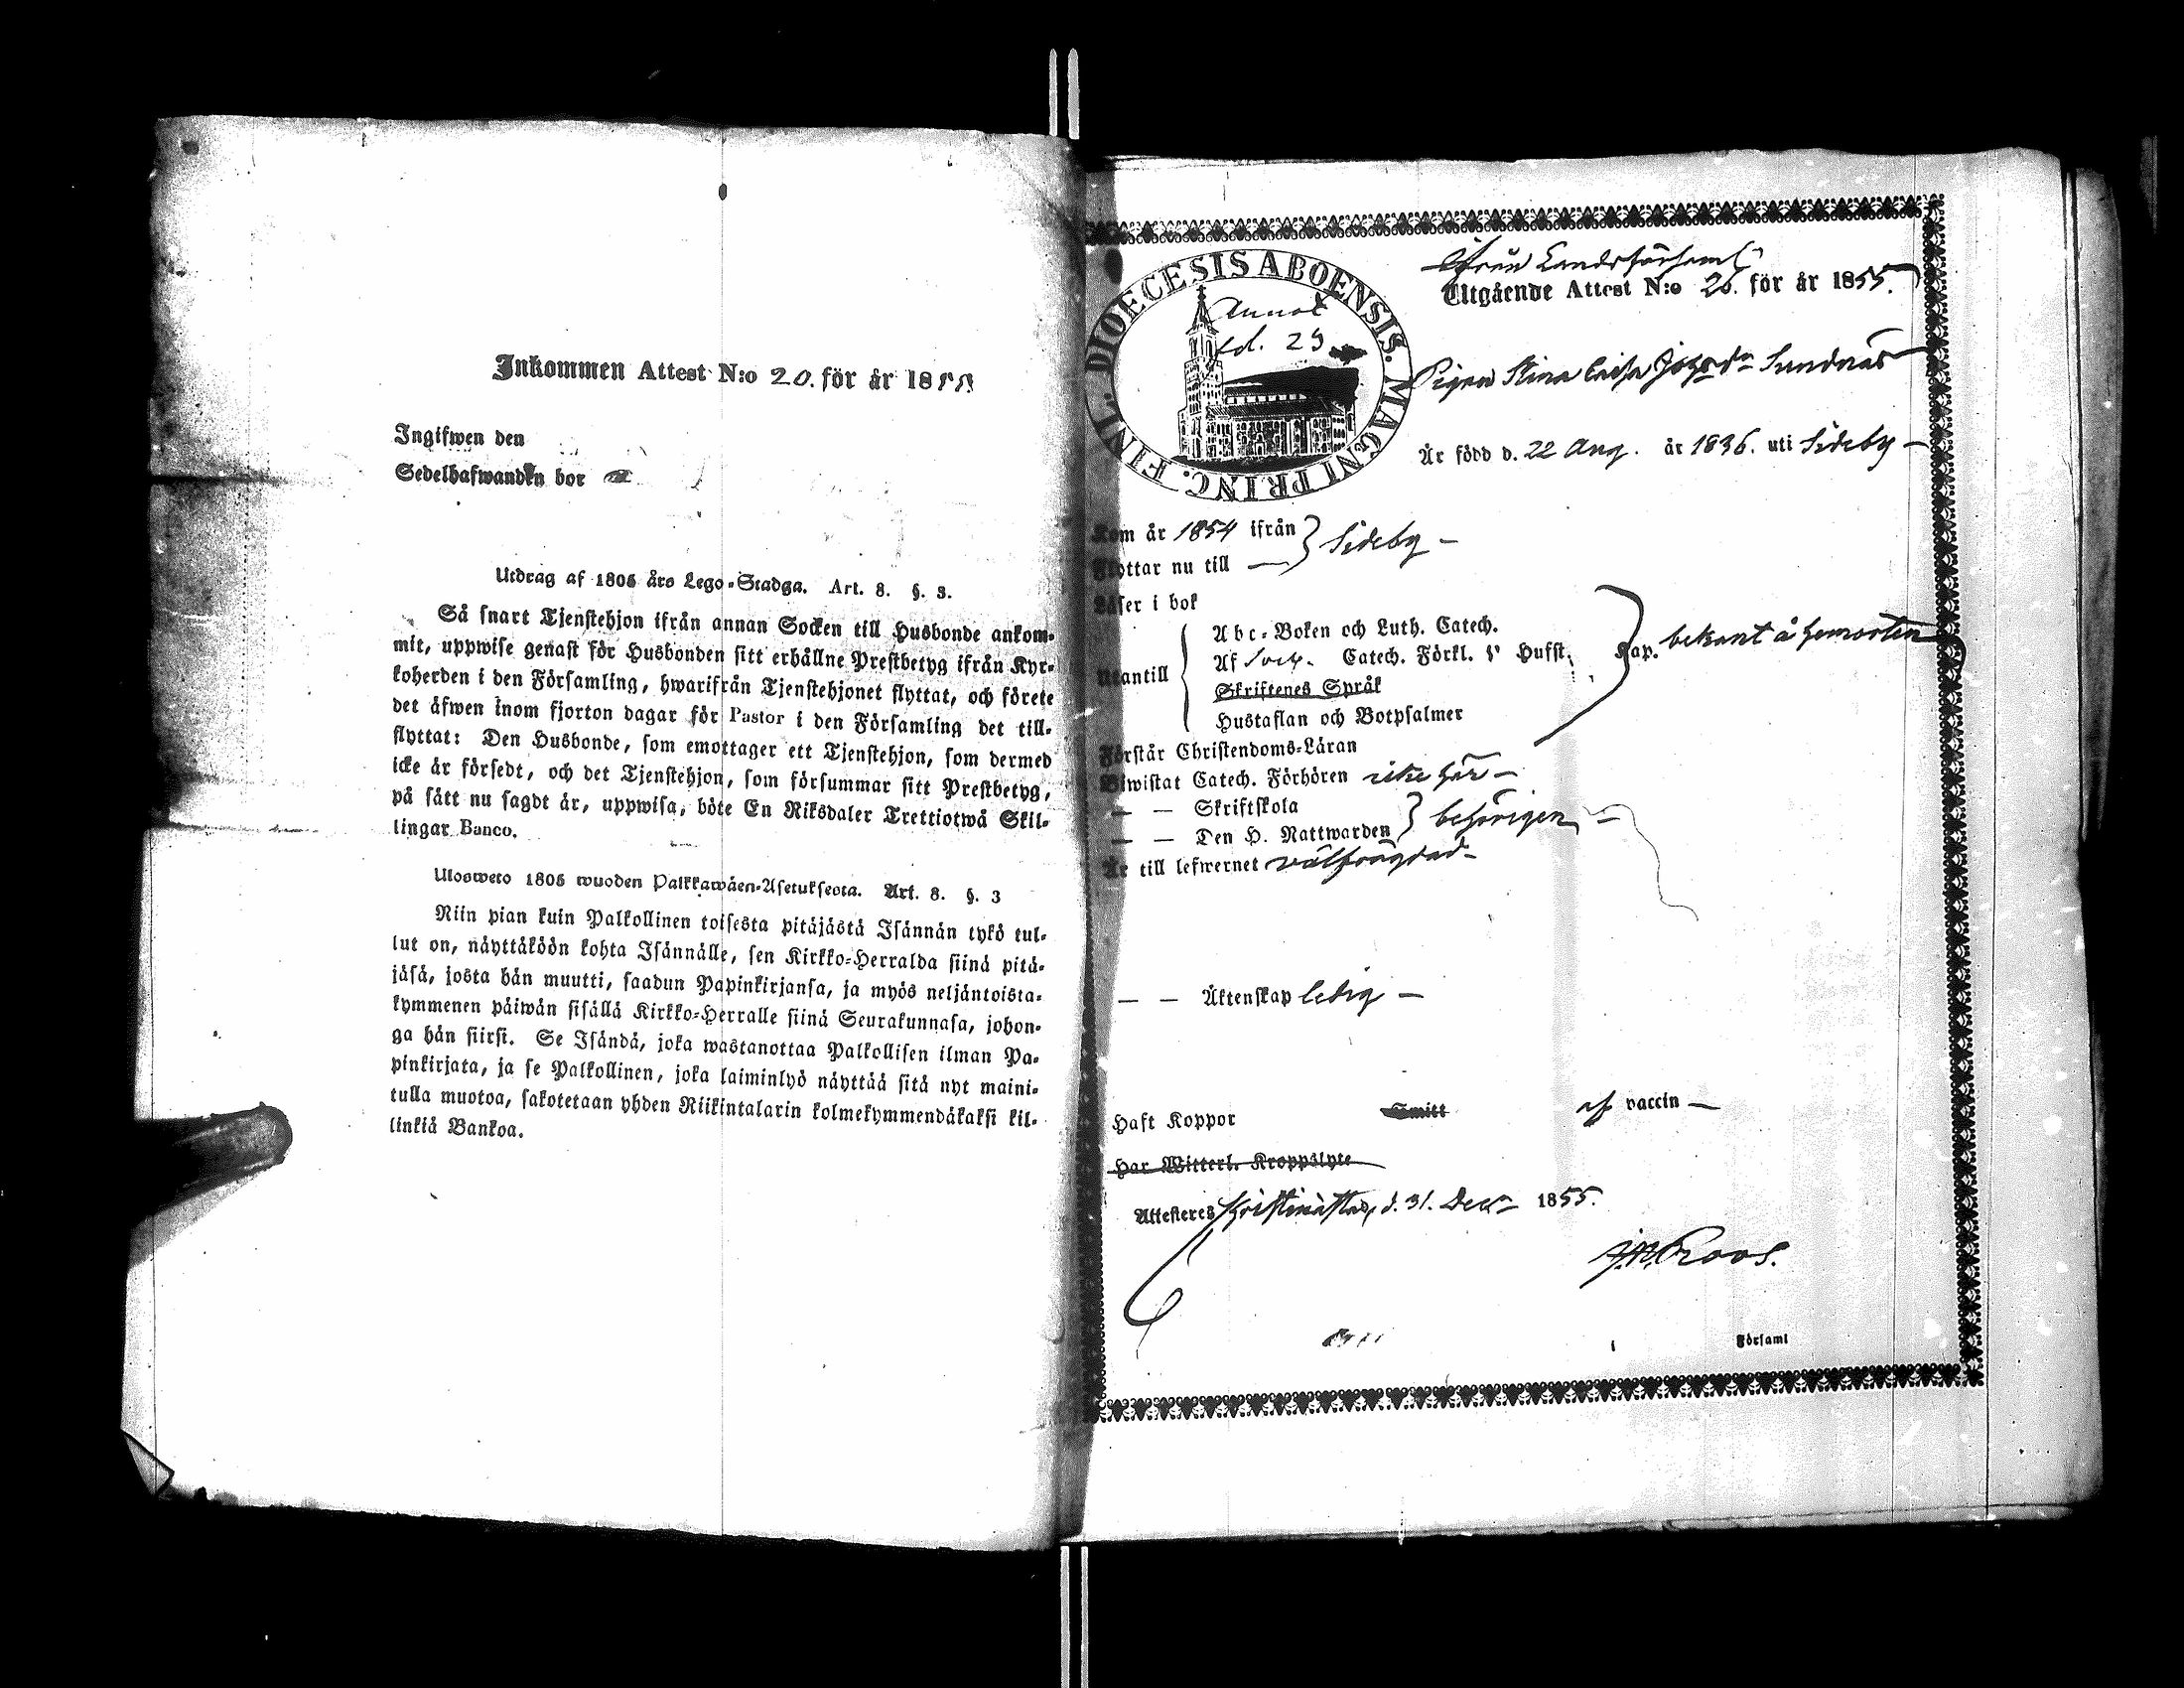 Inkommen Attest N:o 20. för år 1855
Ingifwen den
Sedelhafwanden bor
Utdrag af 1805 års Lego-Stadga. Art. 8. §. 3.
Så snart Tjenstehjon ifrån annan Socken till Husbonde ankom-
mit, uppwise genast för Husbonden sitt erhållne Prestbetyg ifrån Kyr-
koherden i den Församling, hwarifrån Tjenstehjonet flyttat, och förete
det äfwen inom fjorton dagar för Pastor i den Församling det till-
flyttat: Den Husbonde, som emottager ett Tjenstehjon, som dermed
icke är försedt, och det Tjenstehjon, som försummar sitt Prestbetyg,
på sätt nu sagdt är, uppwisa, böte En Riksdaler Trettiotwå Skil-
lingar Banco.
Ulosweto 1805 wuoden Palkkawäen-Asetuksesta. Art. 8. §. 3
Niin pian kuin Palkollinen toisesta pitäjästä Isännän tykö tul-
lut on, näyttäköön kohta Isännälle, sen Kirkko-Herralda siinä pitä-
jäsä, josta hän muutti, saadun Papinkirjansa, ja myös neljäntoista-
kymmenen päiwän sisällä Kirkko-Herralle siinä Seurakunnasa, johon-
ga hän siirsi. Se Isändä, joka wastanottaa Palkollisen ilman Pa-
pinkirjata, ja se Palkollinen, joka laiminlyö näyttää sitä nyt maini-
tulla muotoa, sakotetaan yhden Riikintalarin kolmekymmendäkaksi kil-
linkiä Bankoa.
DIOECESIS ABOENSIS. MAGNI PRINC. FINL.
Annot
fol. 29
ifrån Landsförsaml
Utgående Attest N:o 20. för år 1855.
Pigan Stina Caisa Sundnäs
Är född d. 22 Aug. år 1836. uti Sideby
Kom år 1854 ifrån
Flyttar nu till
Sideby
Läser i bok
Utantill
Abc-Boken och Luth. Catech.
Af Catech. Förkl. Hufst.
Skriftenes Språk
Hustaflan och Botpsalmer
Kap. bekant å hemorten
Förstår Christendoms-Läran
Biwistat Catech. Förhören icke här
— — Skriftskola
— — Den H. Nattwarden
behörigen
Är till lefwernet välfrägdad
— — Äktenskap ledig
Haft Koppor Smitt af vaccin
Har Witterl. Kroppslyte
Attesteres Kristinestad, d. 31. Decr 1855.
J.M. Roos.
Församl